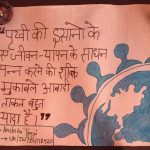 "पृथ्वी की इंसानो के
जीवन-यापन के साधन
उत्पन्न करने की शक्ति
मुकाबले आबादी
ताकत बहुत
ज्यादा है।"